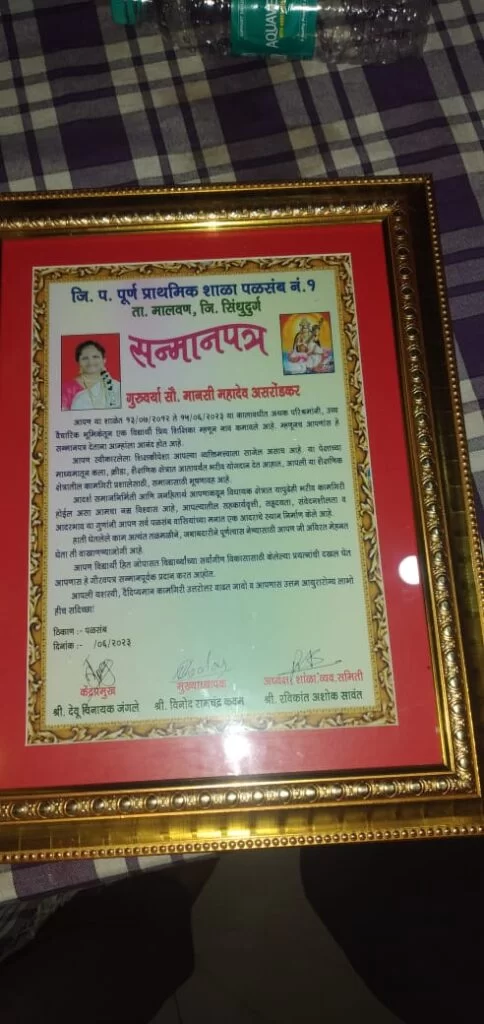 AQUAV
जि. प. पूर्ण प्राथमिक शाळा पळसंब नं.१
ता. मालवण, जि. सिंधुदुर्ग
सन्मानपत्र
गुरुवर्या सौ. मानसी महादेव असरोंडकर
आपण या शाळेत १३/०७/२०१२ ते १५/०६/२०२३ या कालावधीत अथक परिश्रमांनी, उच्च
वैचारिक भूमिकेतून एक विद्यार्थी प्रिय शिक्षिका म्हणून नाव कमावले आहे. म्हणूनच आपणांस हे
सन्मानपत्र देताना आम्हांला आनंद होत आहे.
आपण स्वीकारलेला शिक्षकीपेशा आपल्या व्यक्तिमत्त्वाला साजेल असाच आहे. या पेशाच्या
माध्यमातून कला, क्रीडा, शैक्षणिक क्षेत्रात आतापर्यंत भरीव योगदान देत आहात. आपली या शैक्षणिक
क्षेत्रातील कामगिरी प्रशालेसाठी, समाजासाठी भूषणावह आहे.
आदर्श समाजनिर्मिती आणि जनहितार्थ आपणाकडून विधायक क्षेत्रात यापुढेही भरीव कामगिरी
होईल असा आमचा नम्र विश्वास आहे, आपल्यातील सहकार्यवृत्ती, सहृदयता, संवेदनशीलता व
आदरभाव या गुणांनी आपण सर्व पळसंब वासियांच्या मनात एक आदराचे स्थान निर्माण केले आहे.
हाती घेतलेले काम अत्यंत तळमळीने, जबाबदारीने पूर्णत्वास नेण्यासाठी आपण जी अविरत मेहनत
घेता ती वाखाणण्याजोगी आहे.
आपण विद्यार्थी हित जोपासत विद्यार्थ्यांच्या सर्वांगीण विकासासाठी केलेल्या प्रयत्नांची दखल घेत
आपणास हे गौरवपत्र सन्मानपूर्वक प्रदान करत आहोत.
आपली यशस्वी, दैदिप्यमान कामगिरी उत्तरोत्तर वाढत जावो व आपणास उत्तम आयुरारोग्य लाभो
हीच सदिच्छा!
ठिकाण :- पळसंब
दिनांक :- /०६/२०२३
केंद्रप्रमुख मुख्याध्यापक अध्यक्ष शाळा व्यव. समिती
श्री. देवू विनायक जंगले श्री. विनोद रामचंद्र कदम श्री. रविकांत अशोक सावंत